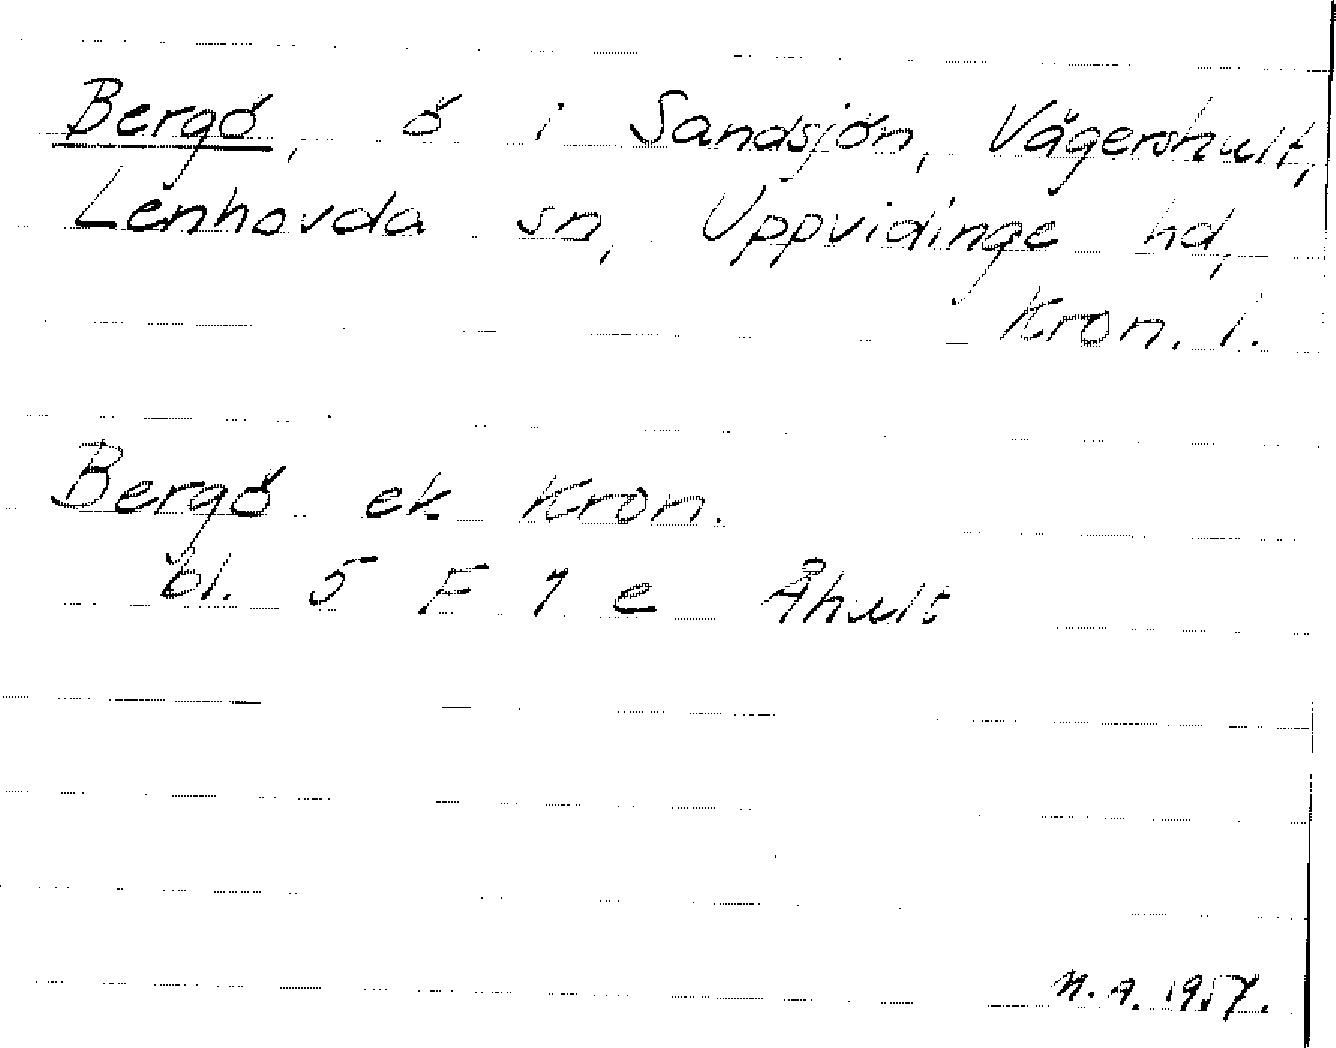 Bergö, ö i Sandsjön, Vågershult,
Lenhovda sn, Uppvidinge hd,
Kron. l.
Bergö ek Kron.
bl. 5 F 1 e Åhult
N.A. 1957.